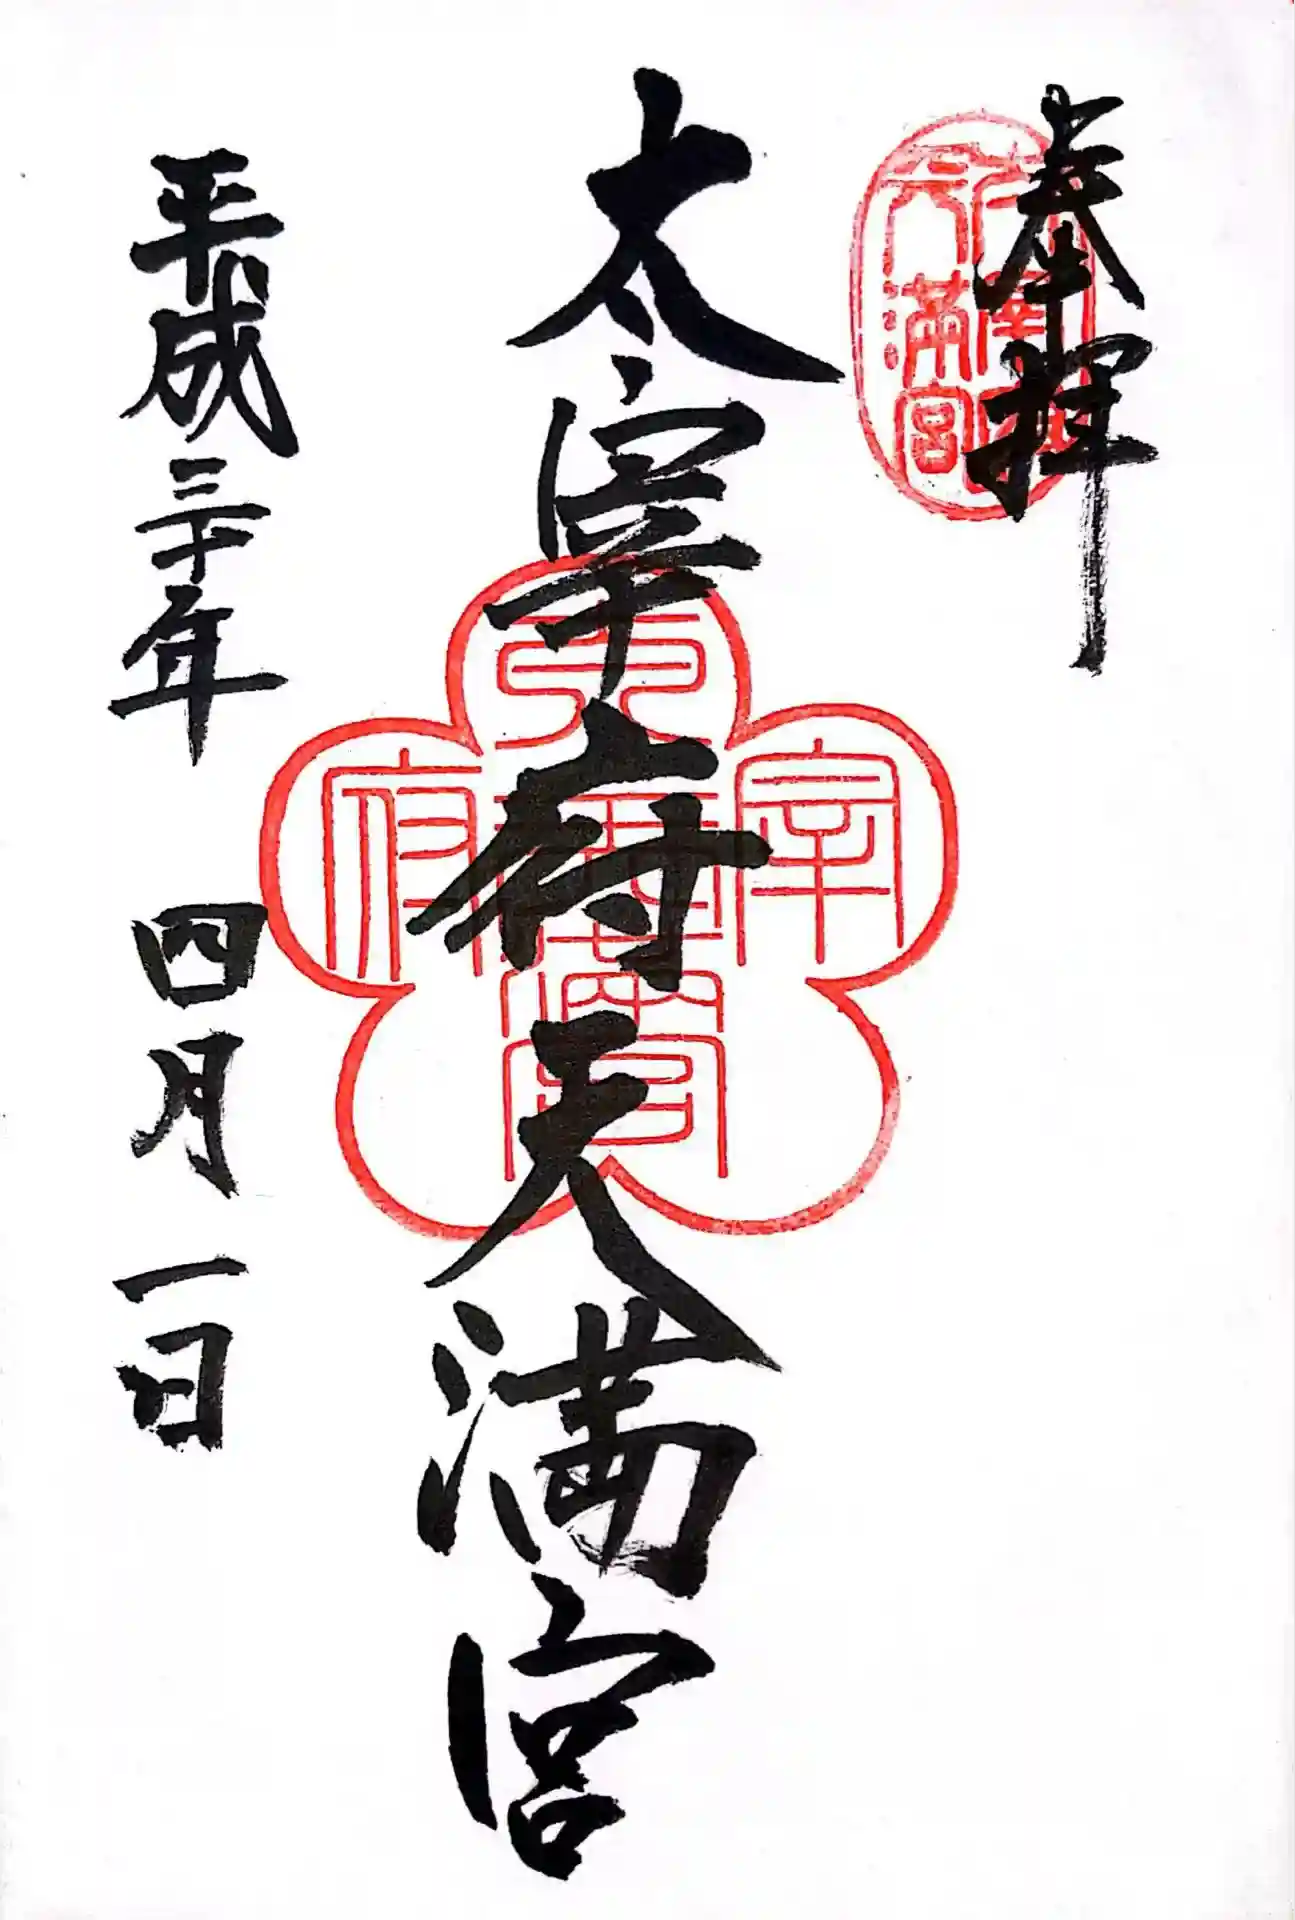 奉拝
太宰府天満宮
平成三十年 四月一日